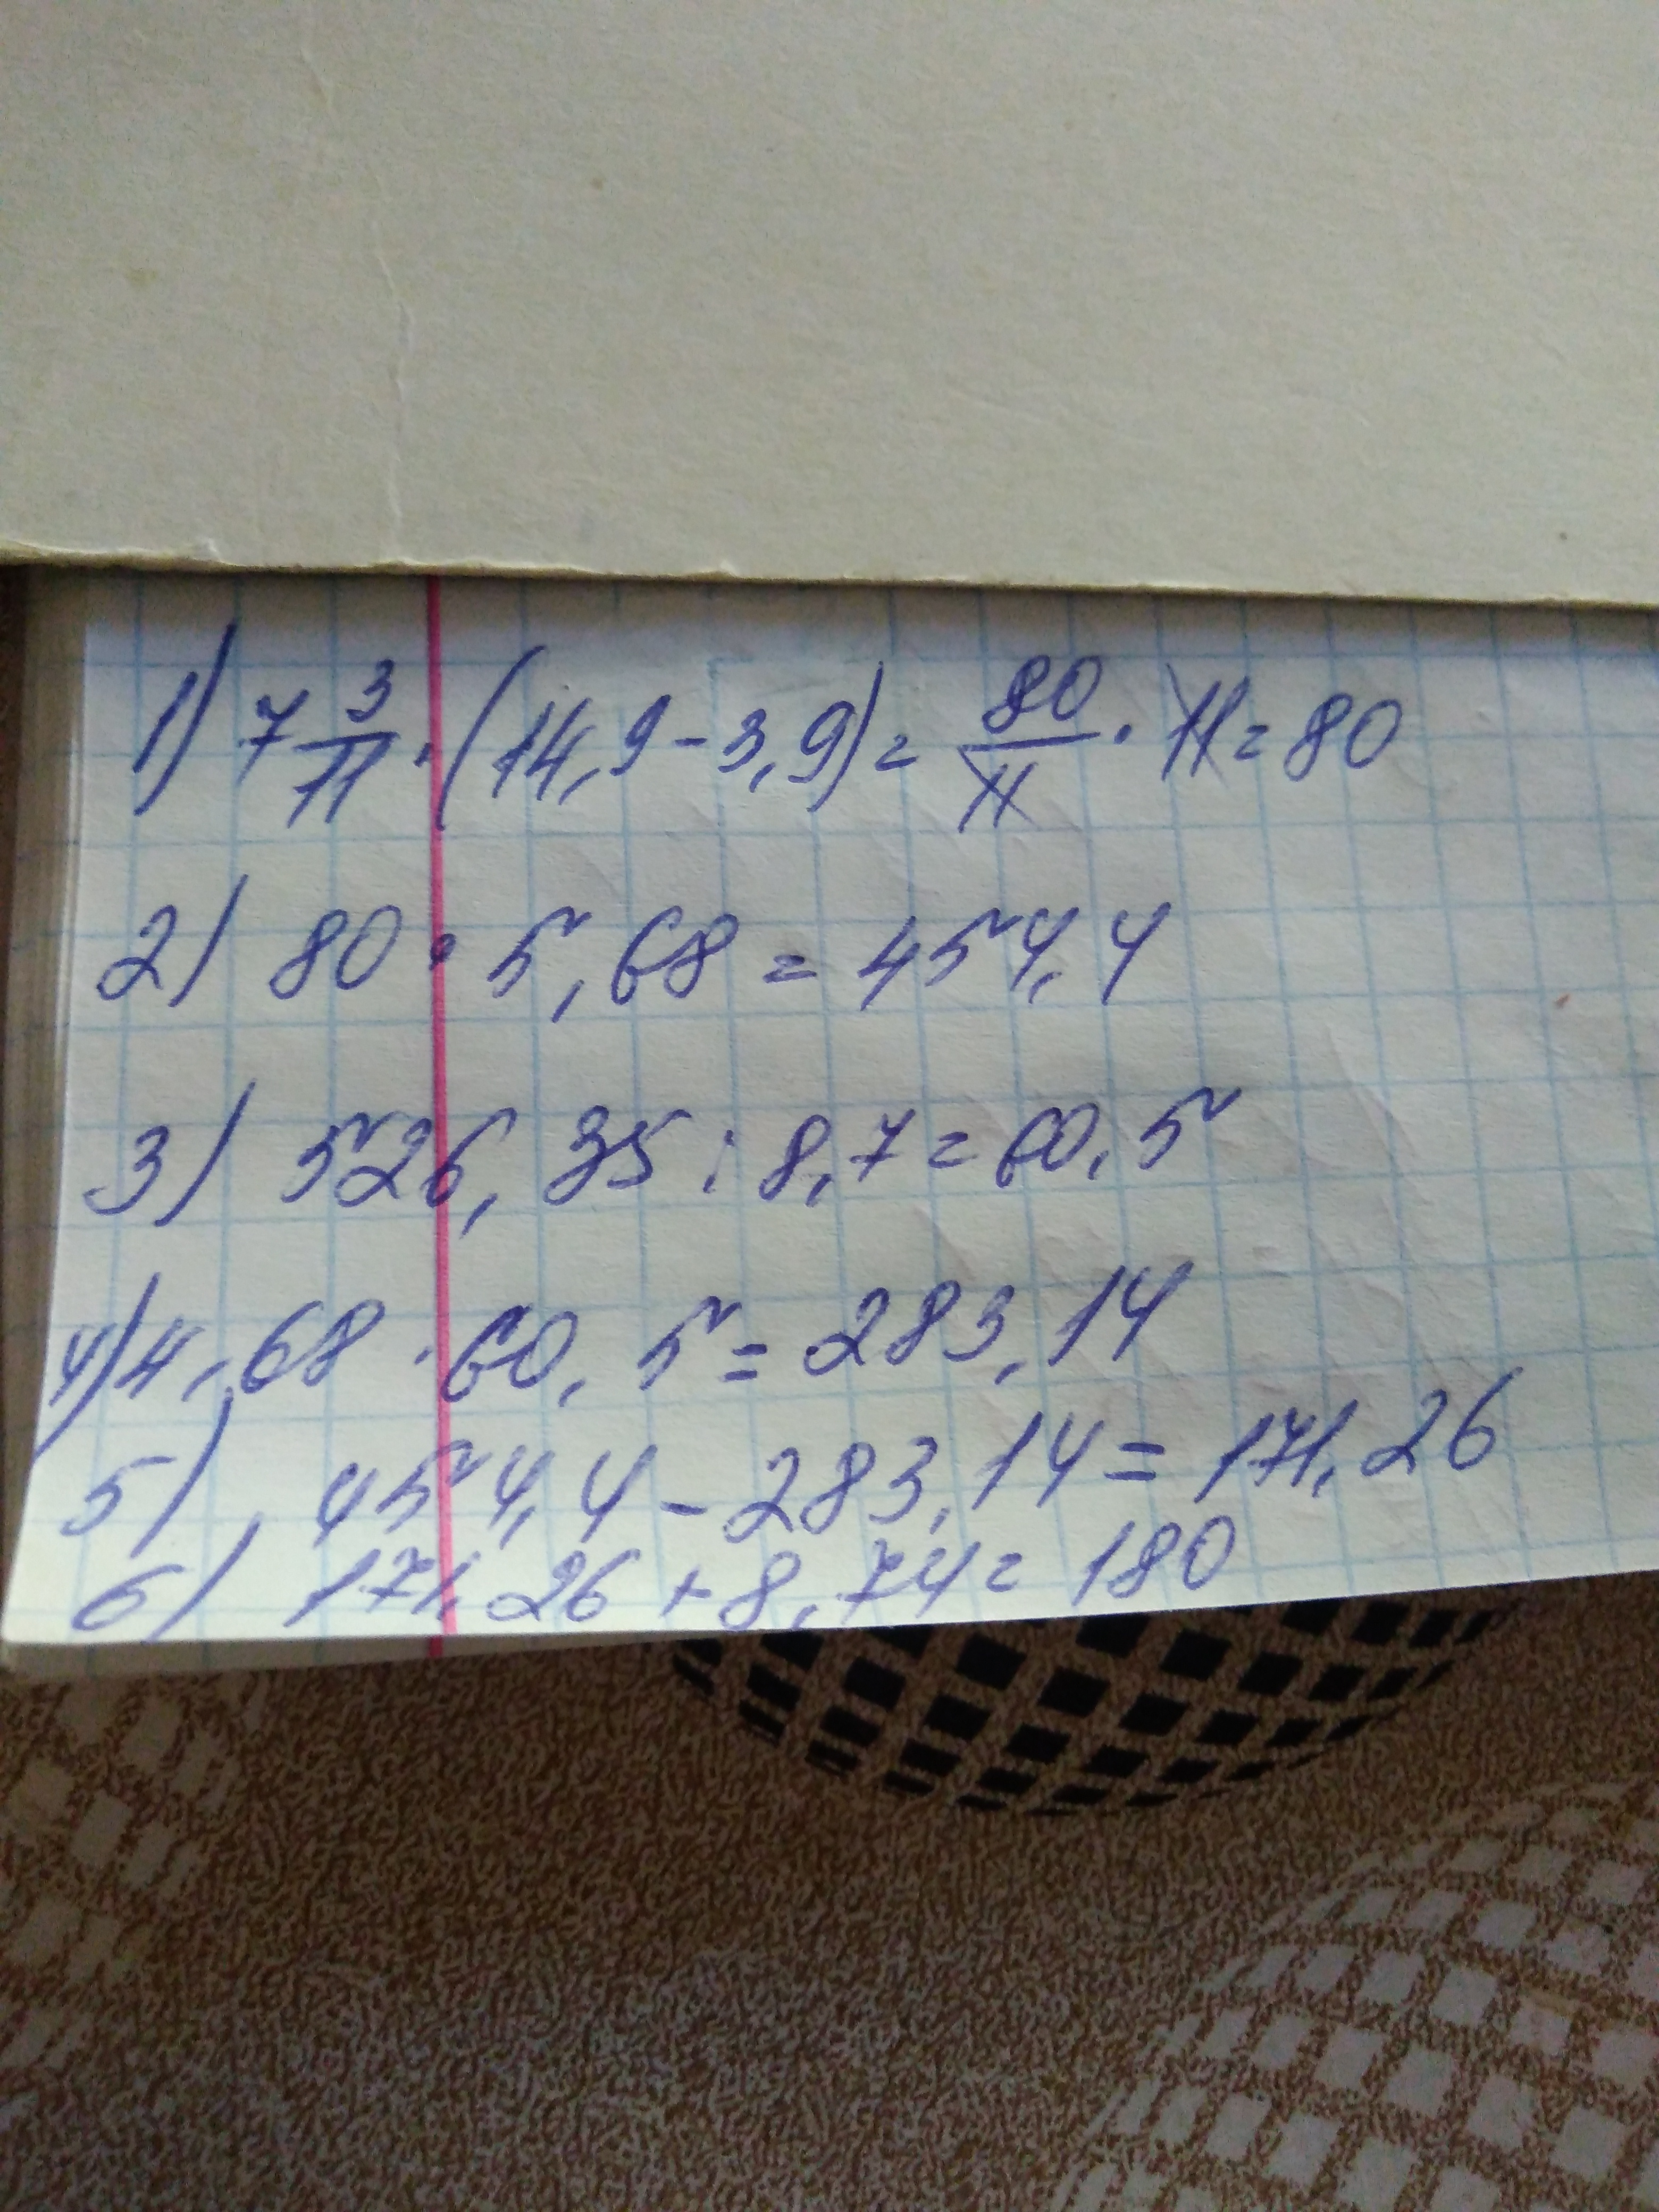 1) 7 3/11 · (14,9 - 3,9) = 80/11 · 11 = 80
2) 80 · 5,68 = 454,4
3) 526,35 : 8,7 = 60,5
4) 4,68 · 60,5 = 283,14
5) 454,4 - 283,14 = 171,26
6) 171,26 + 8,74 = 180